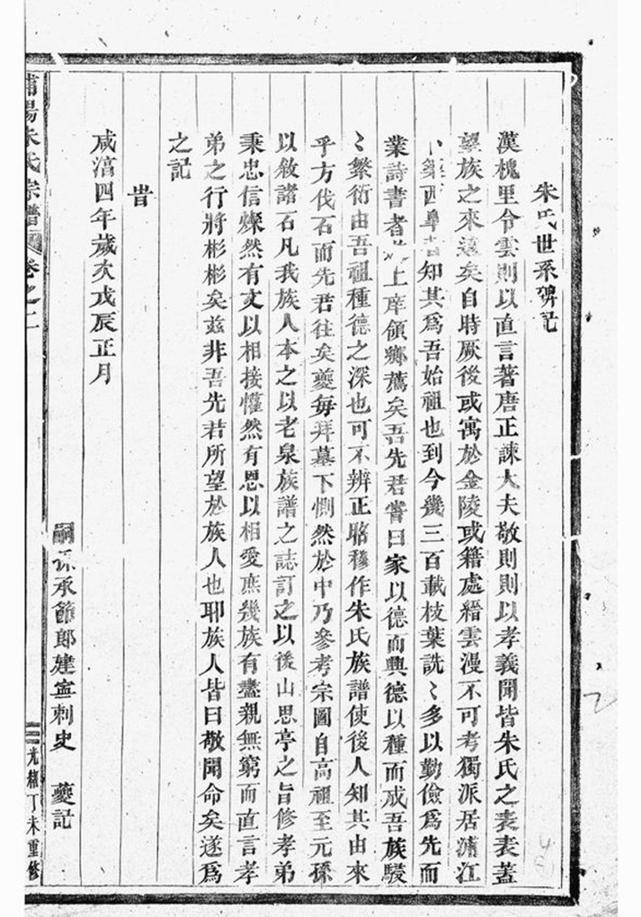 朱氏世系碑記
漢槐里令雲則以直言著唐正諫大夫敬則則以孝義開皆朱氏之表表蓋
望族之來遠矣自時厥後或寓於金陵或籍處縉雲漫不可考獨派居浦江
卜築西皐者知其為吾始祖也到今幾三百載枝葉詵〻多以勤儉為先而
業詩書者上庠領鄉薦矣吾先君嘗曰家以德而興德以種而成吾族駸
〻繁衍由吾祖種德之深也可不辨正昭穆作朱氏族譜使後人知其由來
乎方伐石而先君往矣夔每拜墓下惻然於中乃參考宗圖自高祖至元孫
以敘諸石凡我族人本之以老泉族譜之誌訂之以後山思亭之旨修孝弟
秉忠信燦然有文以相接懽然有恩以相愛庶幾族有盡親無窮而直言孝
弟之行將彬彬矣茲非吾先君所望於族人也耶族人皆曰敬聞命矣遂為
之記
旹
咸淳四年歲次戊辰正月
嗣孫承節郎建寧刺史 夔記
浦陽朱氏宗譜 卷之二 光緒丁未重修